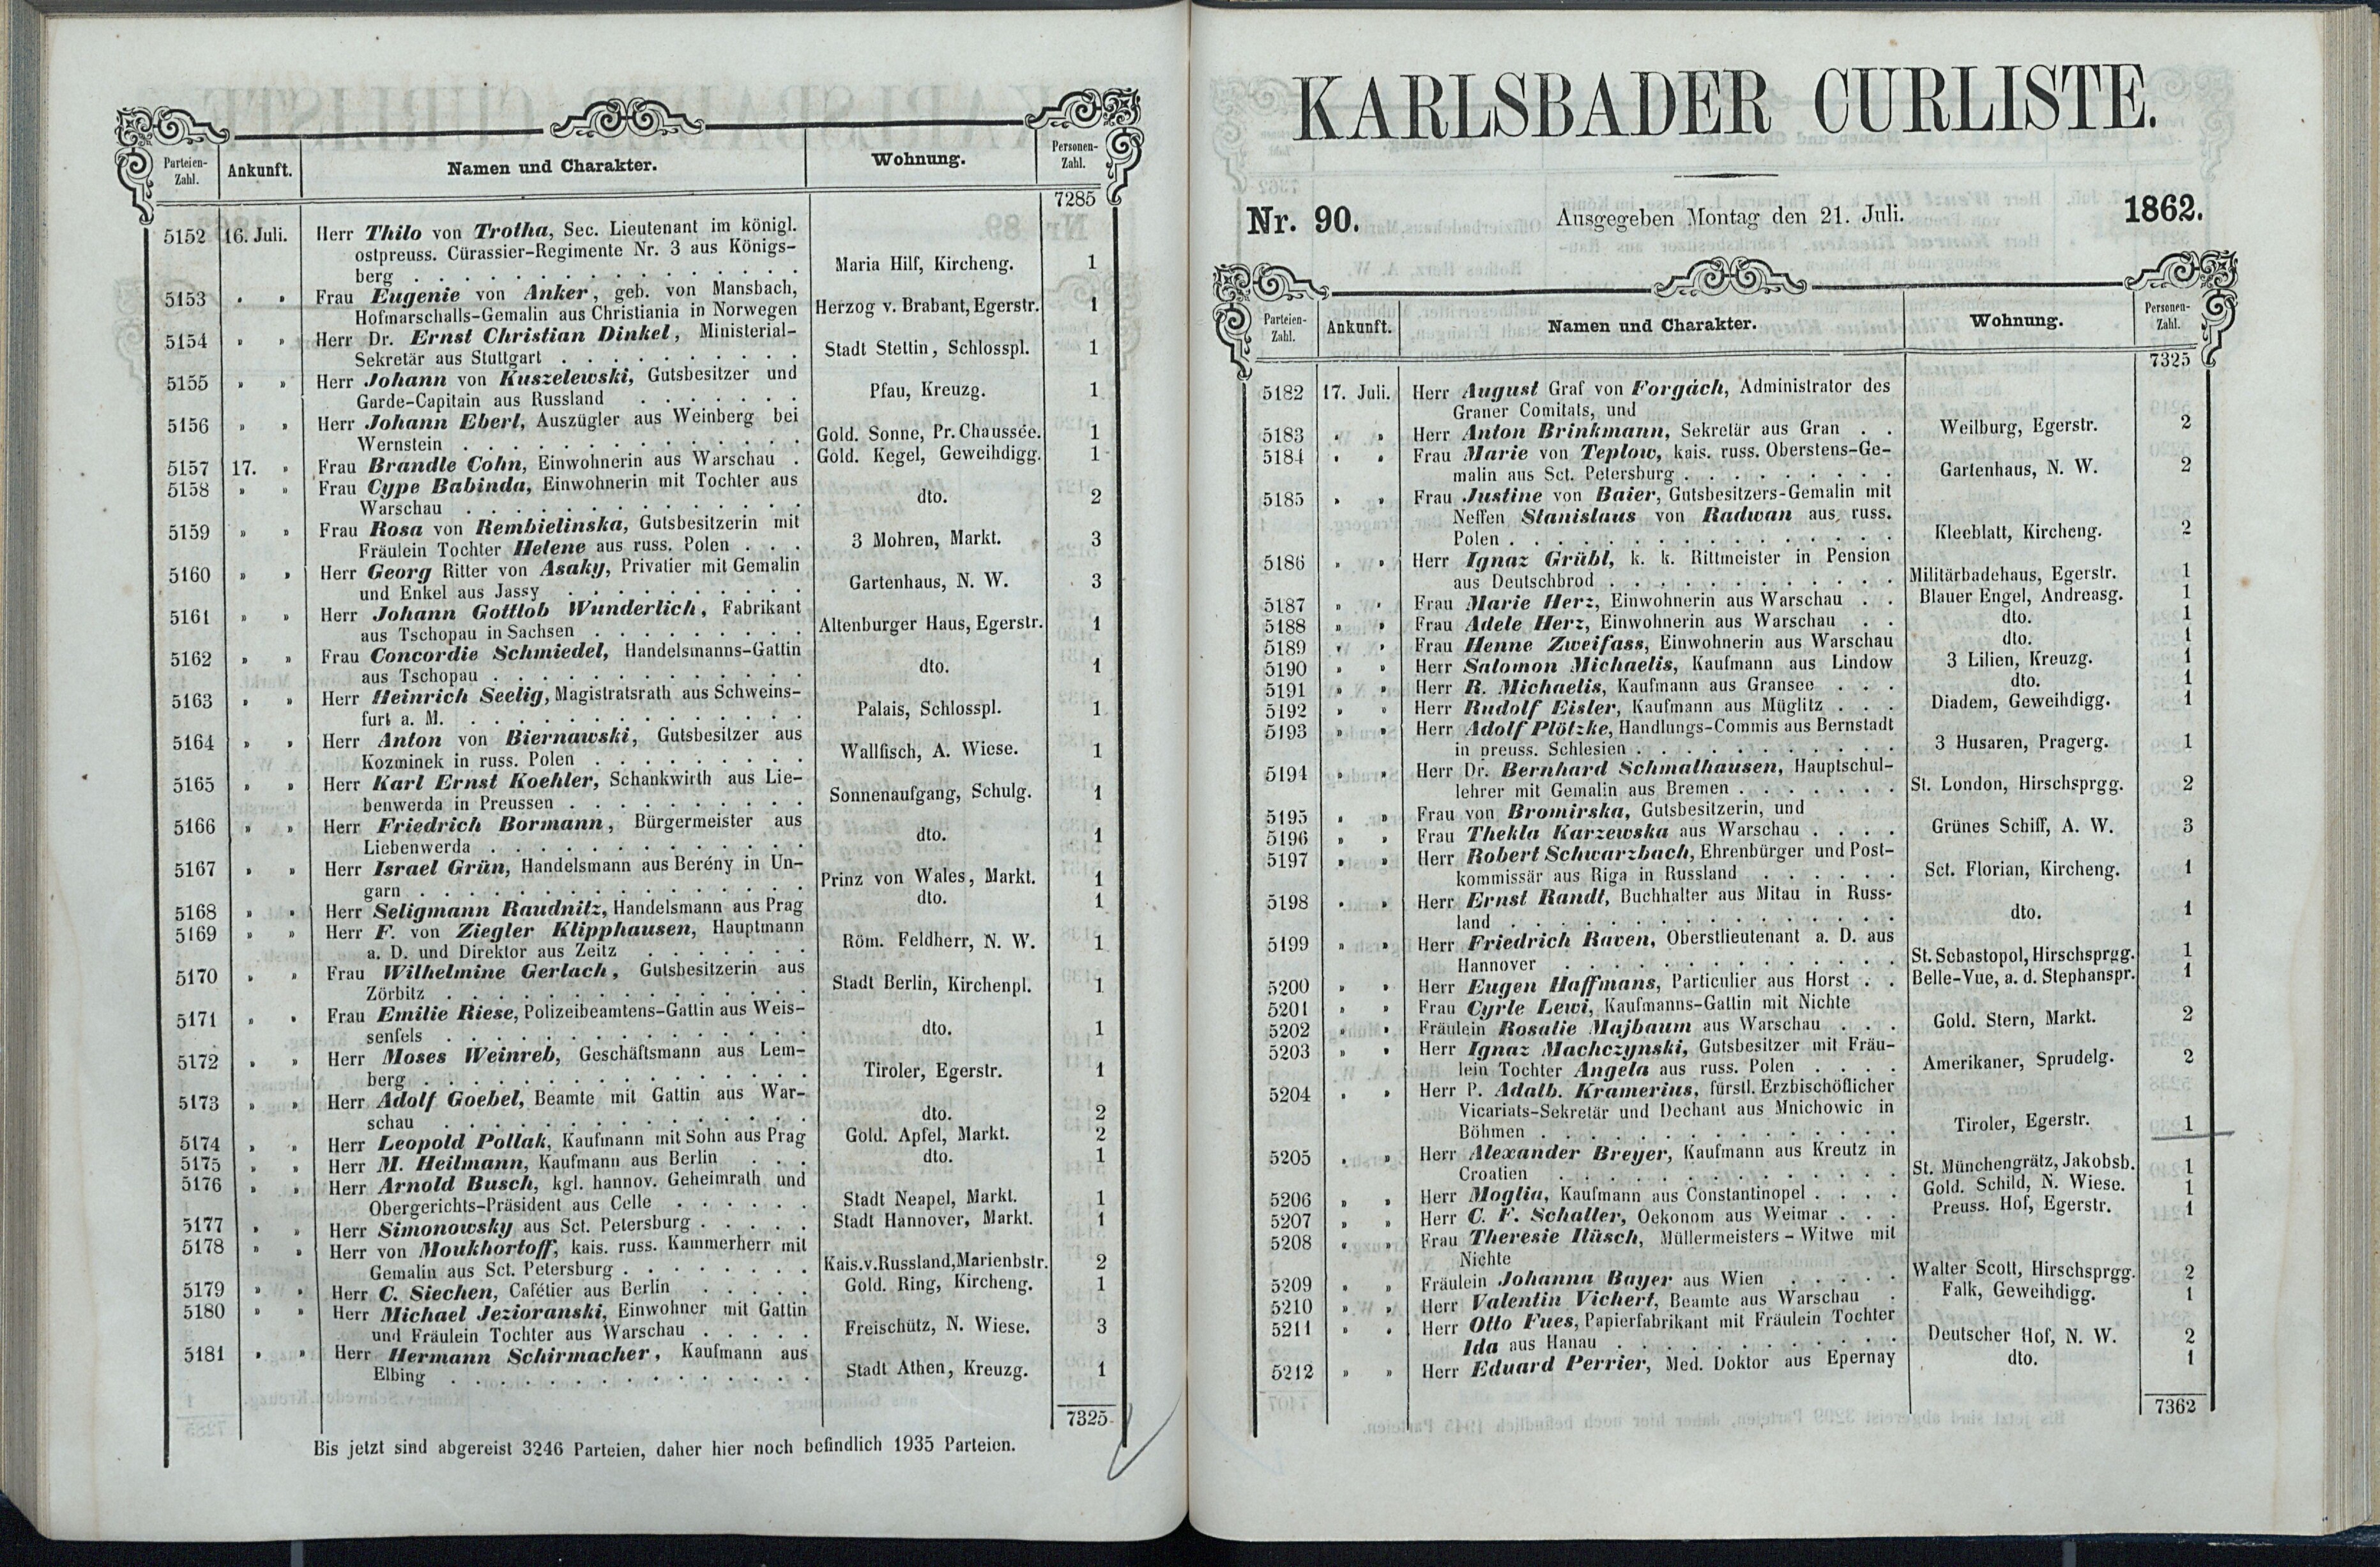 Parteien-Zahl. Ankunft. Namen und Charakter. Wohnung. Personen-Zahl.
7285
5152 16. Juli. Herr Thilo von Trotha, Sec. Lieutenant im königl.
ostpreuss. Cürassier-Regimente Nr. 3 aus Königs-
berg . . . Maria Hilf, Kircheng. 1
5153 " " Frau Eugenie von Anker, geb. von Mansbach,
Hofmarschalls-Gemalin aus Christiania in Norwegen Herzog v. Brabant, Egerstr. 1
5154 " " Herr Dr. Ernst Christian Dinkel, Ministerial-
Sekretär aus Stuttgart . . . Stadt Stettin, Schlosspl. 1
5155 " " Herr Johann von Kuszelewski, Gutsbesitzer und
Garde-Capitain aus Russland . . . Pfau, Kreuzg. 1
5156 " " Herr Johann Eberl, Auszügler aus Weinberg bei
Wernstein . . . Gold. Sonne, Pr. Chaussée. 1
5157 17. " Frau Brandle Cohn, Einwohnerin aus Warschau . Gold. Kegel, Geweihdigg. 1
5158 " " Frau Cype Babinda, Einwohnerin mit Tochter aus
Warschau . . . dto. 2
5159 " " Frau Rosa von Rembielinska, Gutsbesitzerin mit
Fräulein Tochter Helene aus russ. Polen . . . 3 Mohren, Markt. 3
5160 " " Herr Georg Ritter von Asaky, Privatier mit Gemalin
und Enkel aus Jassy . . . Gartenhaus, N. W. 3
5161 " " Herr Johann Gottlob Wunderlich, Fabrikant
aus Tschopau in Sachsen . . . Altenburger Haus, Egerstr. 1
5162 " " Frau Concordie Schmiedel, Handelsmanns-Gattin
aus Tschopau . . . dto. 1
5163 " " Herr Heinrich Seelig, Magistratsrath aus Schweins-
furt a. M. . . . Palais, Schlosspl. 1
5164 " " Herr Anton von Biernawski, Gutsbesitzer aus
Kozminek in russ. Polen . . . Wallfisch, A. Wiese. 1
5165 " " Herr Karl Ernst Koehler, Schankwirth aus Lie-
benwerda in Preussen . . . Sonnenaufgang, Schulg. 1
5166 " " Herr Friedrich Bormann, Bürgermeister aus
Liebenwerda . . . dto. 1
5167 " " Herr Israel Grün, Handelsmann aus Berény in Un-
garn . . . Prinz von Wales, Markt. 1
5168 " " Herr Seligmann Raudnitz, Handelsmann aus Prag dto. 1
5169 " " Herr F. von Ziegler Klipphausen, Hauptmann
a. D. und Direktor aus Zeitz . . . Röm. Feldherr, N. W. 1
5170 " " Frau Wilhelmine Gerlach, Gutsbesitzerin aus
Zörbitz . . . Stadt Berlin, Kirchenpl. 1
5171 " " Frau Emilie Riese, Polizeibeamtens-Gattin aus Weis-
senfels . . . dto. 1
5172 " " Herr Moses Weinreb, Geschäftsmann aus Lem-
berg . . . Tiroler, Egerstr. 1
5173 " " Herr Adolf Goebel, Beamte mit Gattin aus War-
schau . . . dto. 2
5174 " " Herr Leopold Pollak, Kaufmann mit Sohn aus Prag Gold. Apfel, Markt. 2
5175 " " Herr M. Heilmann, Kaufmann aus Berlin . . . dto. 1
5176 " " Herr Arnold Busch, kgl. hannov. Geheimrath und
Obergerichts-Präsident aus Celle . . . Stadt Neapel, Markt. 1
5177 " " Herr Simonowsky aus Sct. Petersburg . . . Stadt Hannover, Markt. 1
5178 " " Herr von Moukhortoff, kais. russ. Kammerherr mit
Gemalin aus Sct. Petersburg . . . Kais.v.Russland,Marienbstr. 2
5179 " " Herr C. Siechen, Cafétier aus Berlin . . . Gold. Ring, Kircheng. 1
5180 " " Herr Michael Jezioranski, Einwohner mit Gattin
und Fräulein Tochter aus Warschau . . . Freischütz, N. Wiese. 3
5181 " " Herr Hermann Schirmacher, Kaufmann aus
Elbing . . . Stadt Athen, Kreuzg. 1
7325
Bis jetzt sind abgereist 3246 Parteien, daher hier noch befindlich 1935 Parteien.
KARLSBADER CURLISTE.
Nr. 90. Ausgegeben Montag den 21. Juli. 1862.
Parteien-Zahl. Ankunft. Namen und Charakter. Wohnung. Personen-Zahl.
7325
5182 17. Juli. Herr August Graf von Forgách, Administrator des
Graner Comitats, und
5183 " " Herr Anton Brinkmann, Sekretär aus Gran . . Weilburg, Egerstr. 2
5184 " " Frau Marie von Teplow, kais. russ. Oberstens-Ge-
malin aus Sct. Petersburg . . . Gartenhaus, N. W. 2
5185 " " Frau Justine von Baier, Gutsbesitzers-Gemalin mit
Neffen Stanislaus von Radwan aus russ.
Polen . . . Kleeblatt, Kircheng. 2
5186 " " Herr Ignaz Grübl, k. k. Rittmeister in Pension
aus Deutschbrod . . . Militärbadehaus, Egerstr. 1
5187 " " Frau Marie Herz, Einwohnerin aus Warschau . . Blauer Engel, Andreasg. 1
5188 " " Frau Adele Herz, Einwohnerin aus Warschau . . dto. 1
5189 " " Frau Henne Zweifass, Einwohnerin aus Warschau dto. 1
5190 " " Herr Salomon Michaelis, Kaufmann aus Lindow 3 Lilien, Kreuzg. 1
5191 " " Herr R. Michaelis, Kaufmann aus Gransee . . . dto. 1
5192 " " Herr Rudolf Eisler, Kaufmann aus Müglitz . . . Diadem, Geweihdigg. 1
5193 " " Herr Adolf Plötzke, Handlungs-Commis aus Bernstadt
in preuss. Schlesien . . . 3 Husaren, Pragerg. 1
5194 " " Herr Dr. Bernhard Schmalhausen, Hauptschul-
lehrer mit Gemalin aus Bremen . . . St. London, Hirschsprgg. 2
5195 " " Frau von Bromirska, Gutsbesitzerin, und
5196 " " Frau Thekla Karzewska aus Warschau . . . . Grünes Schiff, A. W. 3
5197 " " Herr Robert Schwarzbach, Ehrenbürger und Post-
kommissär aus Riga in Russland . . . Sct. Florian, Kircheng. 1
5198 " " Herr Ernst Randt, Buchhalter aus Mitau in Russ-
land . . . dto. 1
5199 " " Herr Friedrich Raven, Oberstlieutenant a. D. aus
Hannover . . . St. Sebastopol, Hirschsprgg. 1
5200 " " Herr Eugen Haffmans, Particulier aus Horst . . Belle-Vue, a. d. Stephanspr. 1
5201 " " Frau Cyrle Lewi, Kaufmanns-Gattin mit Nichte
5202 " " Fräulein Rosalie Majbaum aus Warschau . . . Gold. Stern, Markt. 2
5203 " " Herr Ignaz Machczynski, Gutsbesitzer mit Fräu-
lein Tochter Angela aus russ. Polen . . . . Amerikaner, Sprudelg. 2
5204 " " Herr P. Adalb. Kramerius, fürstl. Erzbischöflicher
Vicariats-Sekretär und Dechant aus Mnichowic in
Böhmen . . . Tiroler, Egerstr. 1
5205 " " Herr Alexander Breyer, Kaufmann aus Kreutz in
Croatien . . . St. Münchengrätz, Jakobsb. 1
5206 " " Herr Moglia, Kaufmann aus Constantinopel . . . . Gold. Schild, N. Wiese. 1
5207 " " Herr C. F. Schaller, Oekonom aus Weimar . . . Preuss. Hof, Egerstr. 1
5208 " " Frau Theresie Ilüsch, Müllermeisters-Witwe mit
Nichte
5209 " " Fräulein Johanna Bayer aus Wien . . . . . Walter Scott, Hirschsprgg. 2
5210 " " Herr Valentin Vichert, Beamte aus Warschau . Falk, Geweihdigg. 1
5211 " " Herr Otto Fues, Papierfabrikant mit Fräulein Tochter
Ida aus Hanau . . . Deutscher Hof, N. W. 2
5212 " " Herr Eduard Perrier, Med. Doktor aus Epernay dto. 1
7362